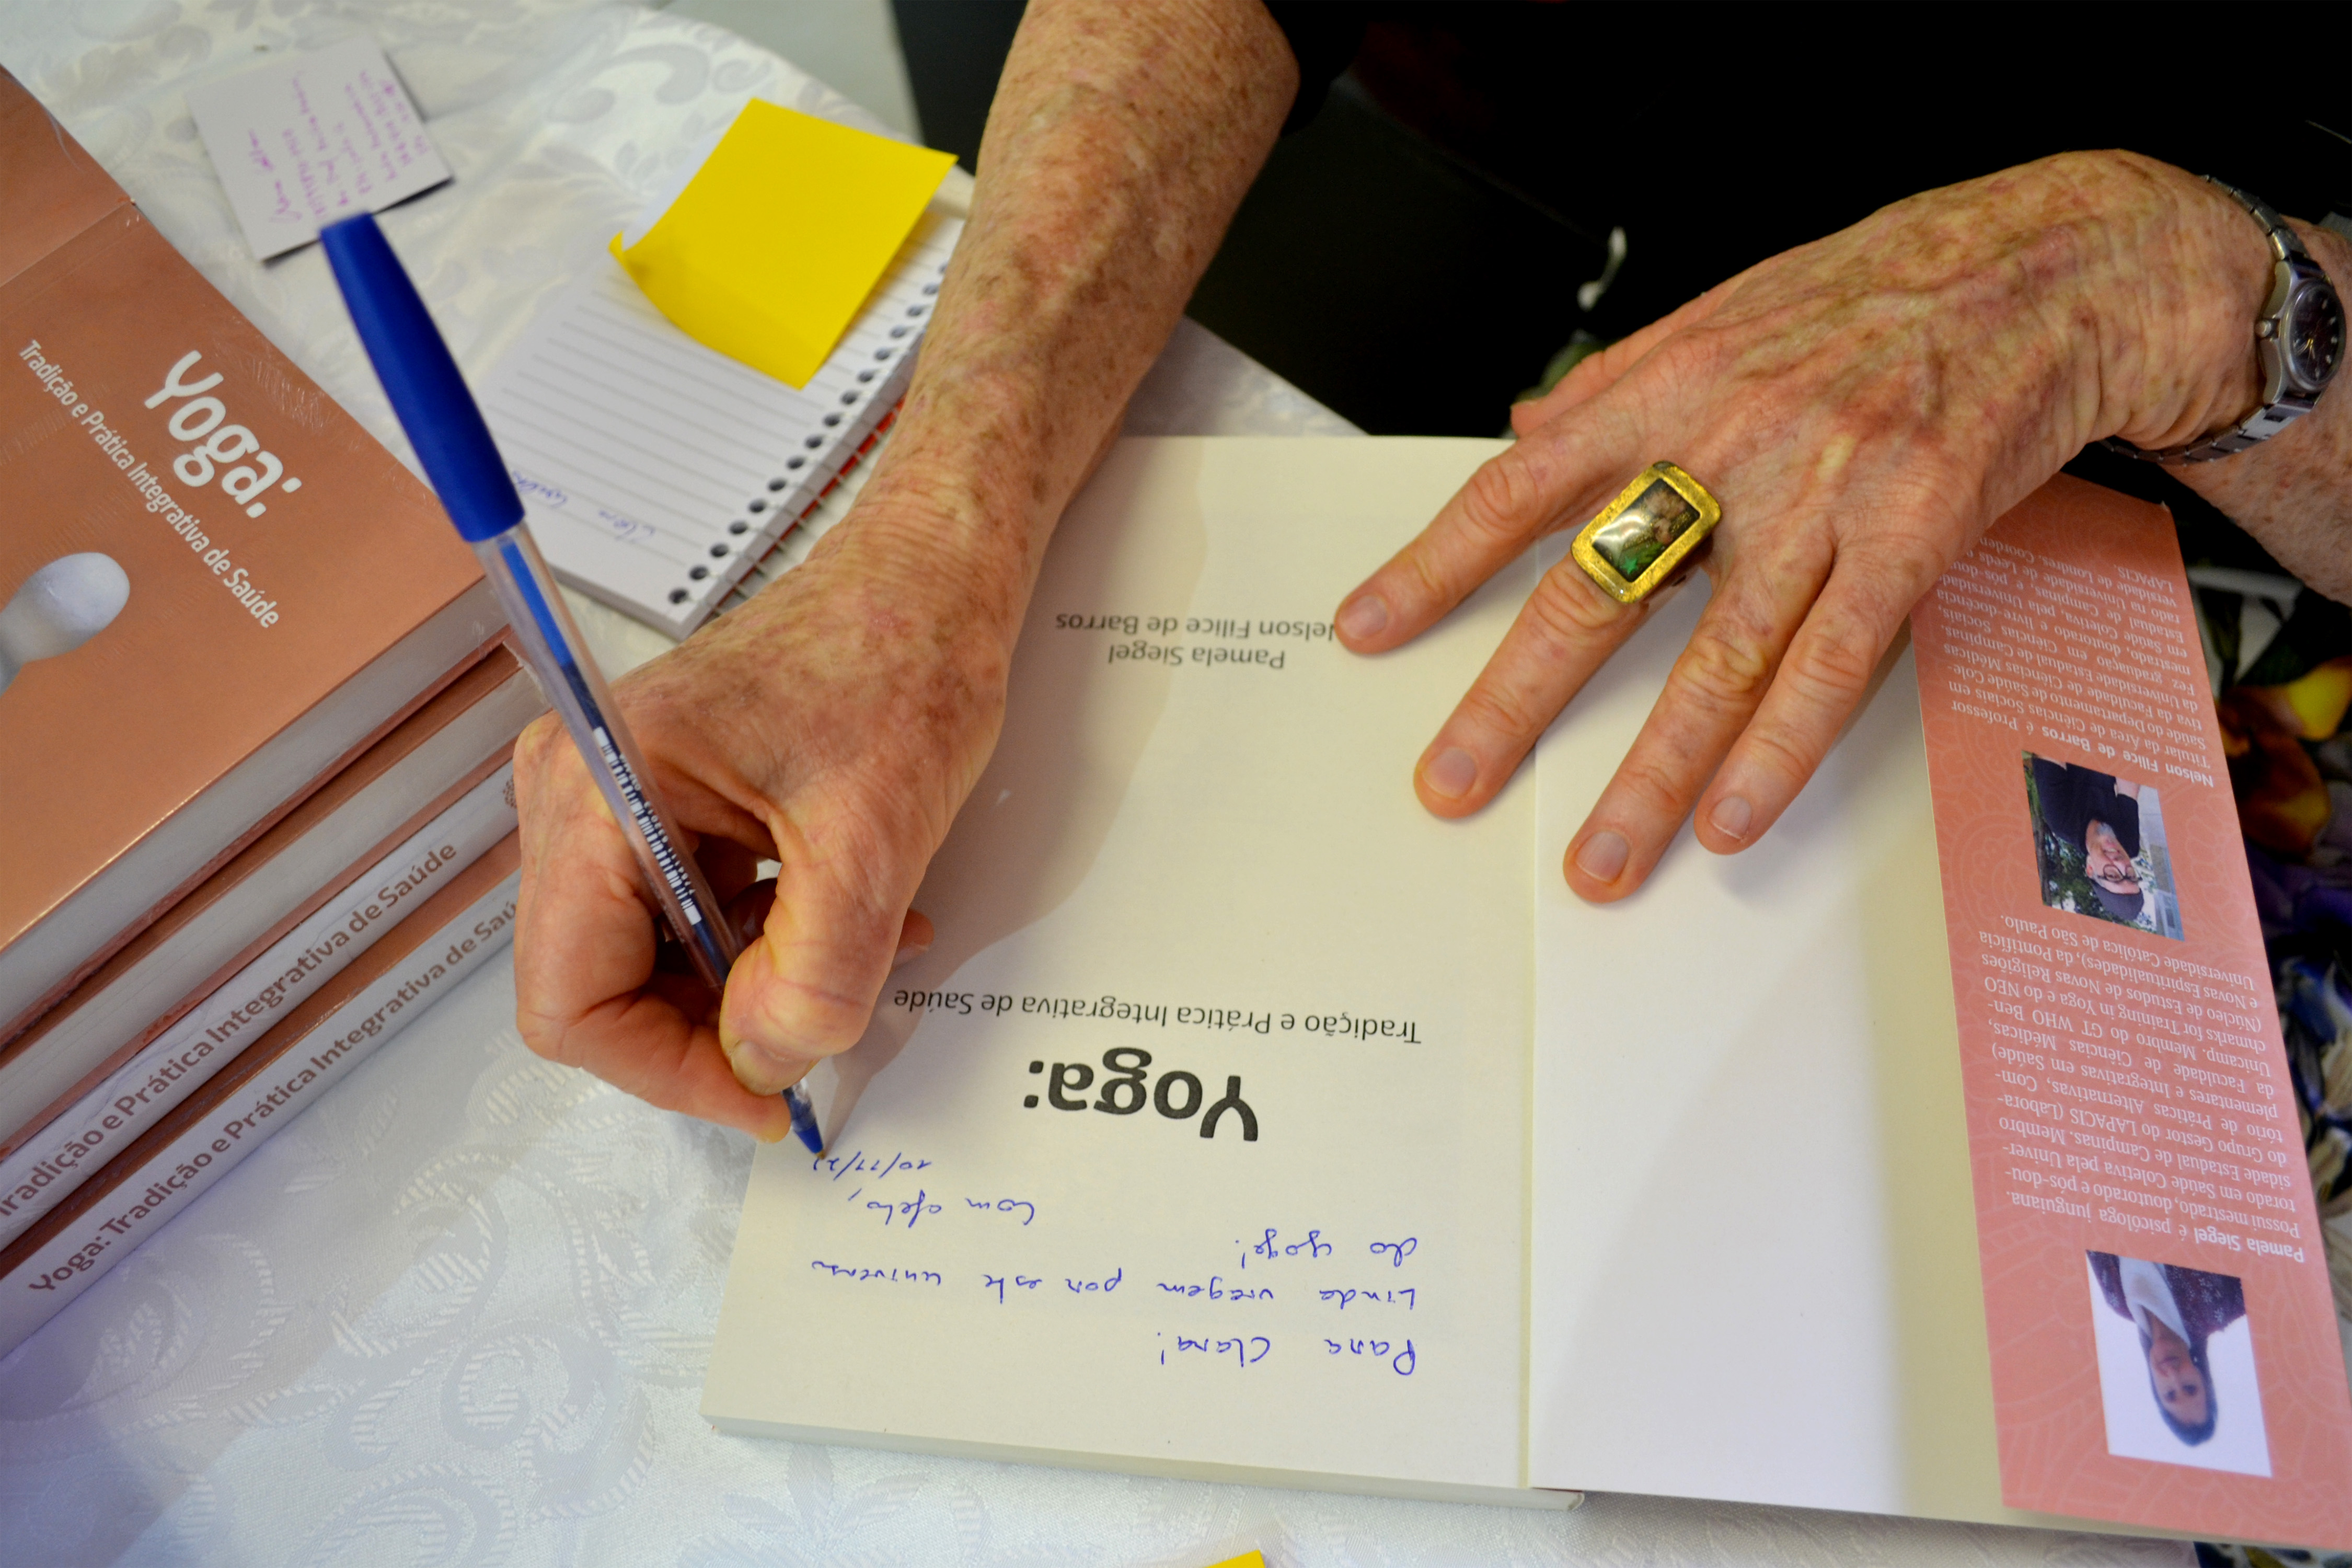 Yoga:
Tradição e Prática Integrativa de Saúde
Tradição e Prática Integrativa de Saúde
Yoga: Tradição e Prática Integrativa de Saú
Para Clara!
Linda viagem por este universo
do yoga!
Com afeto,
10/11/2
Yoga:
Tradição e Prática Integrativa de Saúde
Pamela Siegel
Nelson Filice de Barros
Pamela Siegel é psicóloga junguiana.
Possui mestrado, doutorado e pós-dou-
torado em Saúde Coletiva pela Univer-
sidade Estadual de Campinas. Membro
do Grupo Gestor do LAPACIS (Labora-
tório de Práticas Alternativas, Com-
plementares e Integrativas em Saúde)
da Faculdade de Ciências Médicas,
Unicamp. Membro do GT WHO Ben-
chmarks for Training in Yoga e do NEO
(Núcleo de Estudos de Novas Religiões
e Novas Espiritualidades), da Pontifícia
Universidade Católica de São Paulo.
Nelson Filice de Barros é Professor
Titular da Área de Ciências Sociais em
Saúde do Departamento de Saúde Cole-
tiva da Faculdade de Ciências Médicas
da Universidade Estadual de Campinas.
Fez graduação em Ciências Sociais,
mestrado, doutorado e livre-docência,
em Saúde Coletiva, pela Universidade
Estadual de Campinas, e pós-dou-
rado na Universidade de Leeds
versidade de Londres. Coorden
LAPACIS.